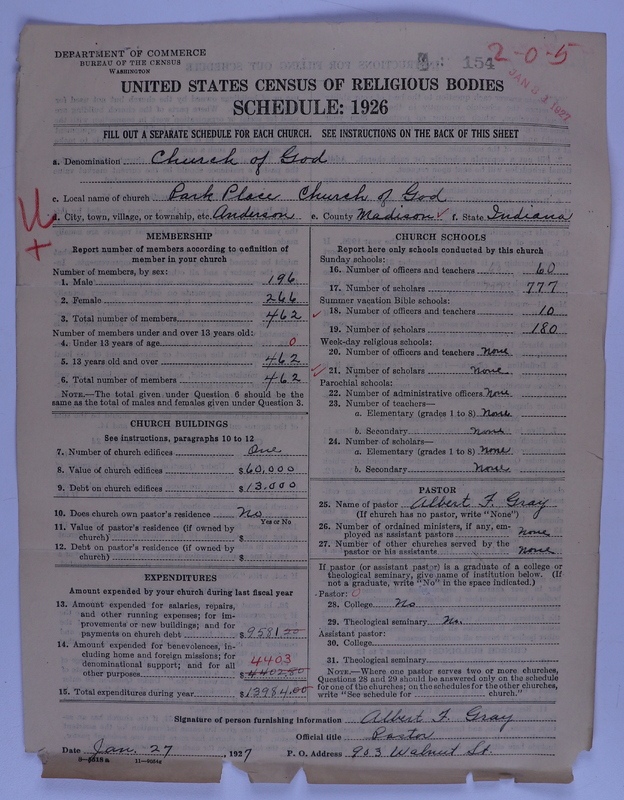 DEPARTMENT OF COMMERCE
BUREAU OF THE CENSUS
WASHINGTON
154
2-0-5
JAN 31 1927
UNITED STATES CENSUS OF RELIGIOUS BODIES
SCHEDULE: 1926
FILL OUT A SEPARATE SCHEDULE FOR EACH CHURCH. SEE INSTRUCTIONS ON THE BACK OF THIS SHEET
a. Denomination Church of God
c. Local name of church Park Place Church of God
d. City, town, village, or township, etc. Anderson e. County Madison f. State Indiana
MEMBERSHIP
Report number of members according to definition of
member in your church
Number of members, by sex:
1. Male 196
2. Female 266
3. Total number of members 462
Number of members under and over 13 years old:
4. Under 13 years of age 0
5. 13 years old and over 462
6. Total number of members 462
NOTE.—The total given under Question 6 should be the
same as the total of males and females given under Question 3.
CHURCH BUILDINGS
See instructions, paragraphs 10 to 12
7. Number of church edifices One
8. Value of church edifices $60,000
9. Debt on church edifices $13,000
10. Does church own pastor's residence No
Yes or No
11. Value of pastor's residence (if owned by
church) $
12. Debt on pastor's residence (if owned by
church) $
EXPENDITURES
Amount expended by your church during last fiscal year
13. Amount expended for salaries, repairs,
and other running expenses; for im-
provements or new buildings; and for
payments on church debt $9581.20
14. Amount expended for benevolences, in-
cluding home and foreign missions; for
denominational support; and for all 4403
other purposes $4402.80
15. Total expenditures during year $13984.00
CHURCH SCHOOLS
Report here only schools conducted by this church
Sunday schools:
16. Number of officers and teachers 60
17. Number of scholars 777
Summer vacation Bible schools:
18. Number of officers and teachers 10
19. Number of scholars 180
Week-day religious schools:
20. Number of officers and teachers None
21. Number of scholars None
Parochial schools:
22. Number of administrative officers None
23. Number of teachers—
a. Elementary (grades 1 to 8) None
b. Secondary None
24. Number of scholars—
a. Elementary (grades 1 to 8) None
b. Secondary None
PASTOR
25. Name of pastor Albert F. Gray
(If church has no pastor, write "None")
26. Number of ordained ministers, if any, em-
ployed as assistant pastors None
27. Number of other churches served by the
pastor or his assistants None
If pastor (or assistant pastor) is a graduate of a college or
theological seminary, give name of institution below. (If
not a graduate, write "No" in the space indicated.)
Pastor: 0
28. College No
29. Theological seminary No.
Assistant pastor:
30. College
31. Theological seminary
NOTE.—Where one pastor serves two or more churches,
Questions 28 and 29 should be answered only on the schedule
for one of the churches; on the schedules for the other churches,
write "See schedule for church."
Signature of person furnishing information Albert F. Gray
Official title Pastor
Date Jan. 27, 1927 P. O. Address 903 Walnut St.